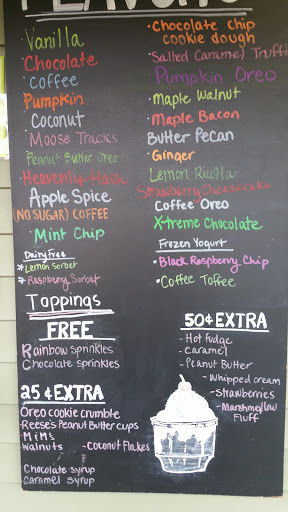 FLAVORS
Vanilla
Chocolate
Coffee
Pumpkin
Coconut
Moose Tracks
Peanut Butter Oreo
Heavenly Hash
Apple Spice
(NO SUGAR) COFFEE
Mint Chip
Dairy free
Lemon Sorbet
Raspberry Sorbet
Chocolate Chip
cookie dough
Salted Caramel Truffle
Pumpkin Oreo
Maple Walnut
Maple Bacon
Butter Pecan
Ginger
Lemon Ricotta
Strawberry Cheesecake
Coffee Oreo
X-treme Chocolate
Frozen Yogurt
Black Raspberry Chip
Coffee Toffee
Toppings
FREE
Rainbow sprinkles
Chocolate sprinkles
25¢ EXTRA
Oreo cookie crumble
Reese's Peanut Butter cups
M&Ms
Walnuts
- Coconut Flakes
Chocolate syrup
Caramel syrup
50¢ EXTRA
- Hot fudge
- caramel
- Peanut Butter
- Whipped cream
- Strawberries
- Marshmallow
Fluff